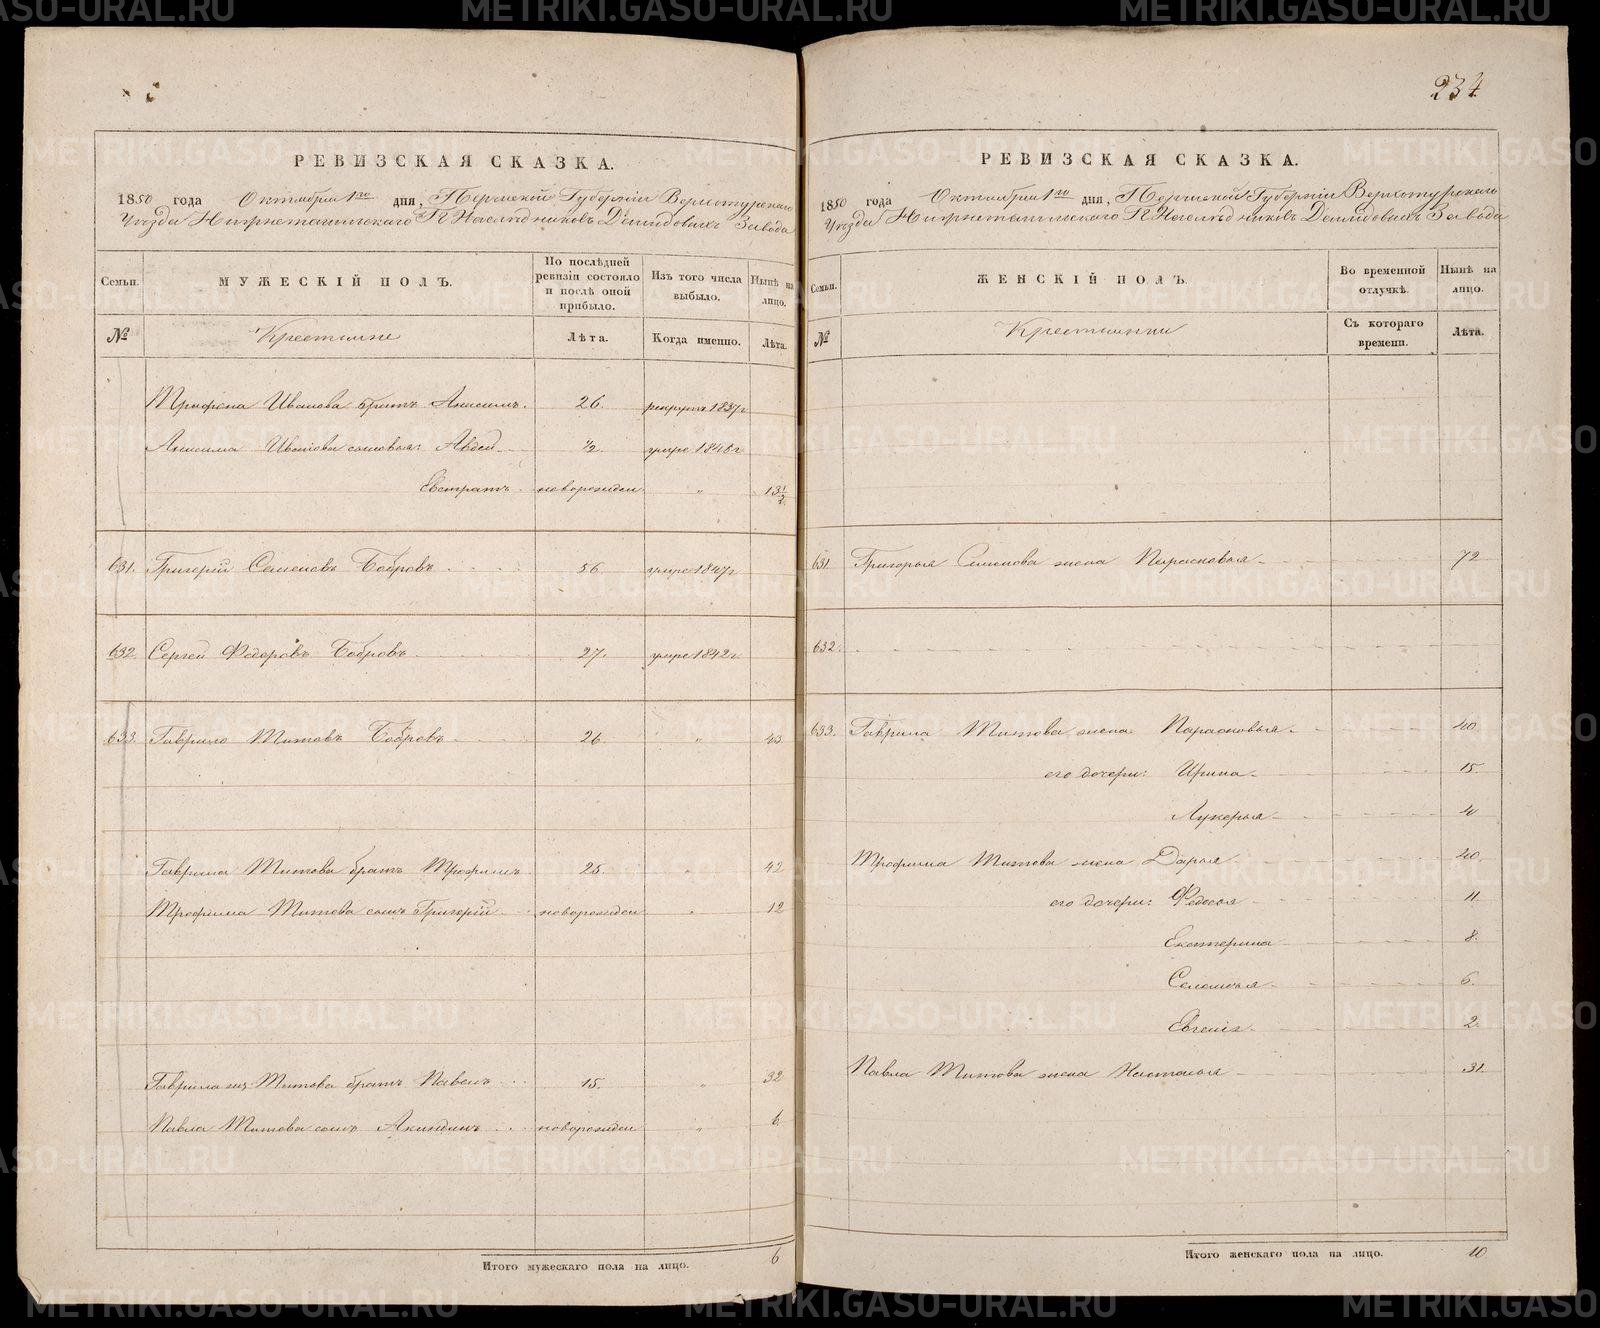 234
РЕВИЗСКАЯ СКАЗКА.
1850 года Октября 1го дня, Пермской Губернiи Верхотурскаго
Уѣзда Нижнетагильскаго Г.г. Наслѣдниковъ Демидовыхъ Завода
Семьи. МУЖЕСКІЙ ПОЛЪ. По послѣдней ревизіи состояло и послѣ оной прибыло. Изъ того числа выбыло. Нынѣ на лицо.
№ Крестьяне Лѣта. Когда именно. Лѣта.
Иванова братъ Анисимъ. 26. рекрут 1837г
Анисима Иванова сыновья: Авдей 1/2 умре 1846г
Евстратъ новорожден „ 13 1/2
631. Григорій Семеновъ Бобровъ 56 умре 1847г
632. Сергей Федоровъ Бобровъ 27. умре 1842г
633. Гаврило Титовъ Бобровъ 26. „ 43
Гаврила Титова братъ Трофимъ 25. „ 42
Трофима Титова сынъ Григорій новорожден „ 12
Гаврила же Титова братъ Павелъ 15. „ 32
Павла Титова сынъ Акиндинъ новорожден „ 6
Итого мужескаго пола на лицо. 6
РЕВИЗСКАЯ СКАЗКА.
1850 года Октября 1го дня, Пермской Губернiи Верхотурскаго
Уѣзда Нижнетагильскаго Г.г. Наслѣдниковъ Демидовыхъ Завода
Семьи. ЖЕНСКІЙ ПОЛЪ. Во временной отлучкѣ. Нынѣ на лицо.
№ Крестьянки Съ котораго времени. Лѣта.
631 Григорья Семенова жена Парасковья 72
632.
633. Гаврила Титова жена Парасковья 40
его дочери: Ирина 15.
Лукерья 4
Трофима Титова жена Дарья 40
его дочери: Федосья 11.
Екатерина 8.
Соломія 6.
Евгенія 2.
Павла Титова жена Настасья 31
Итого женскаго пола на лицо. 10
METRIKI.GASO-URAL.RU